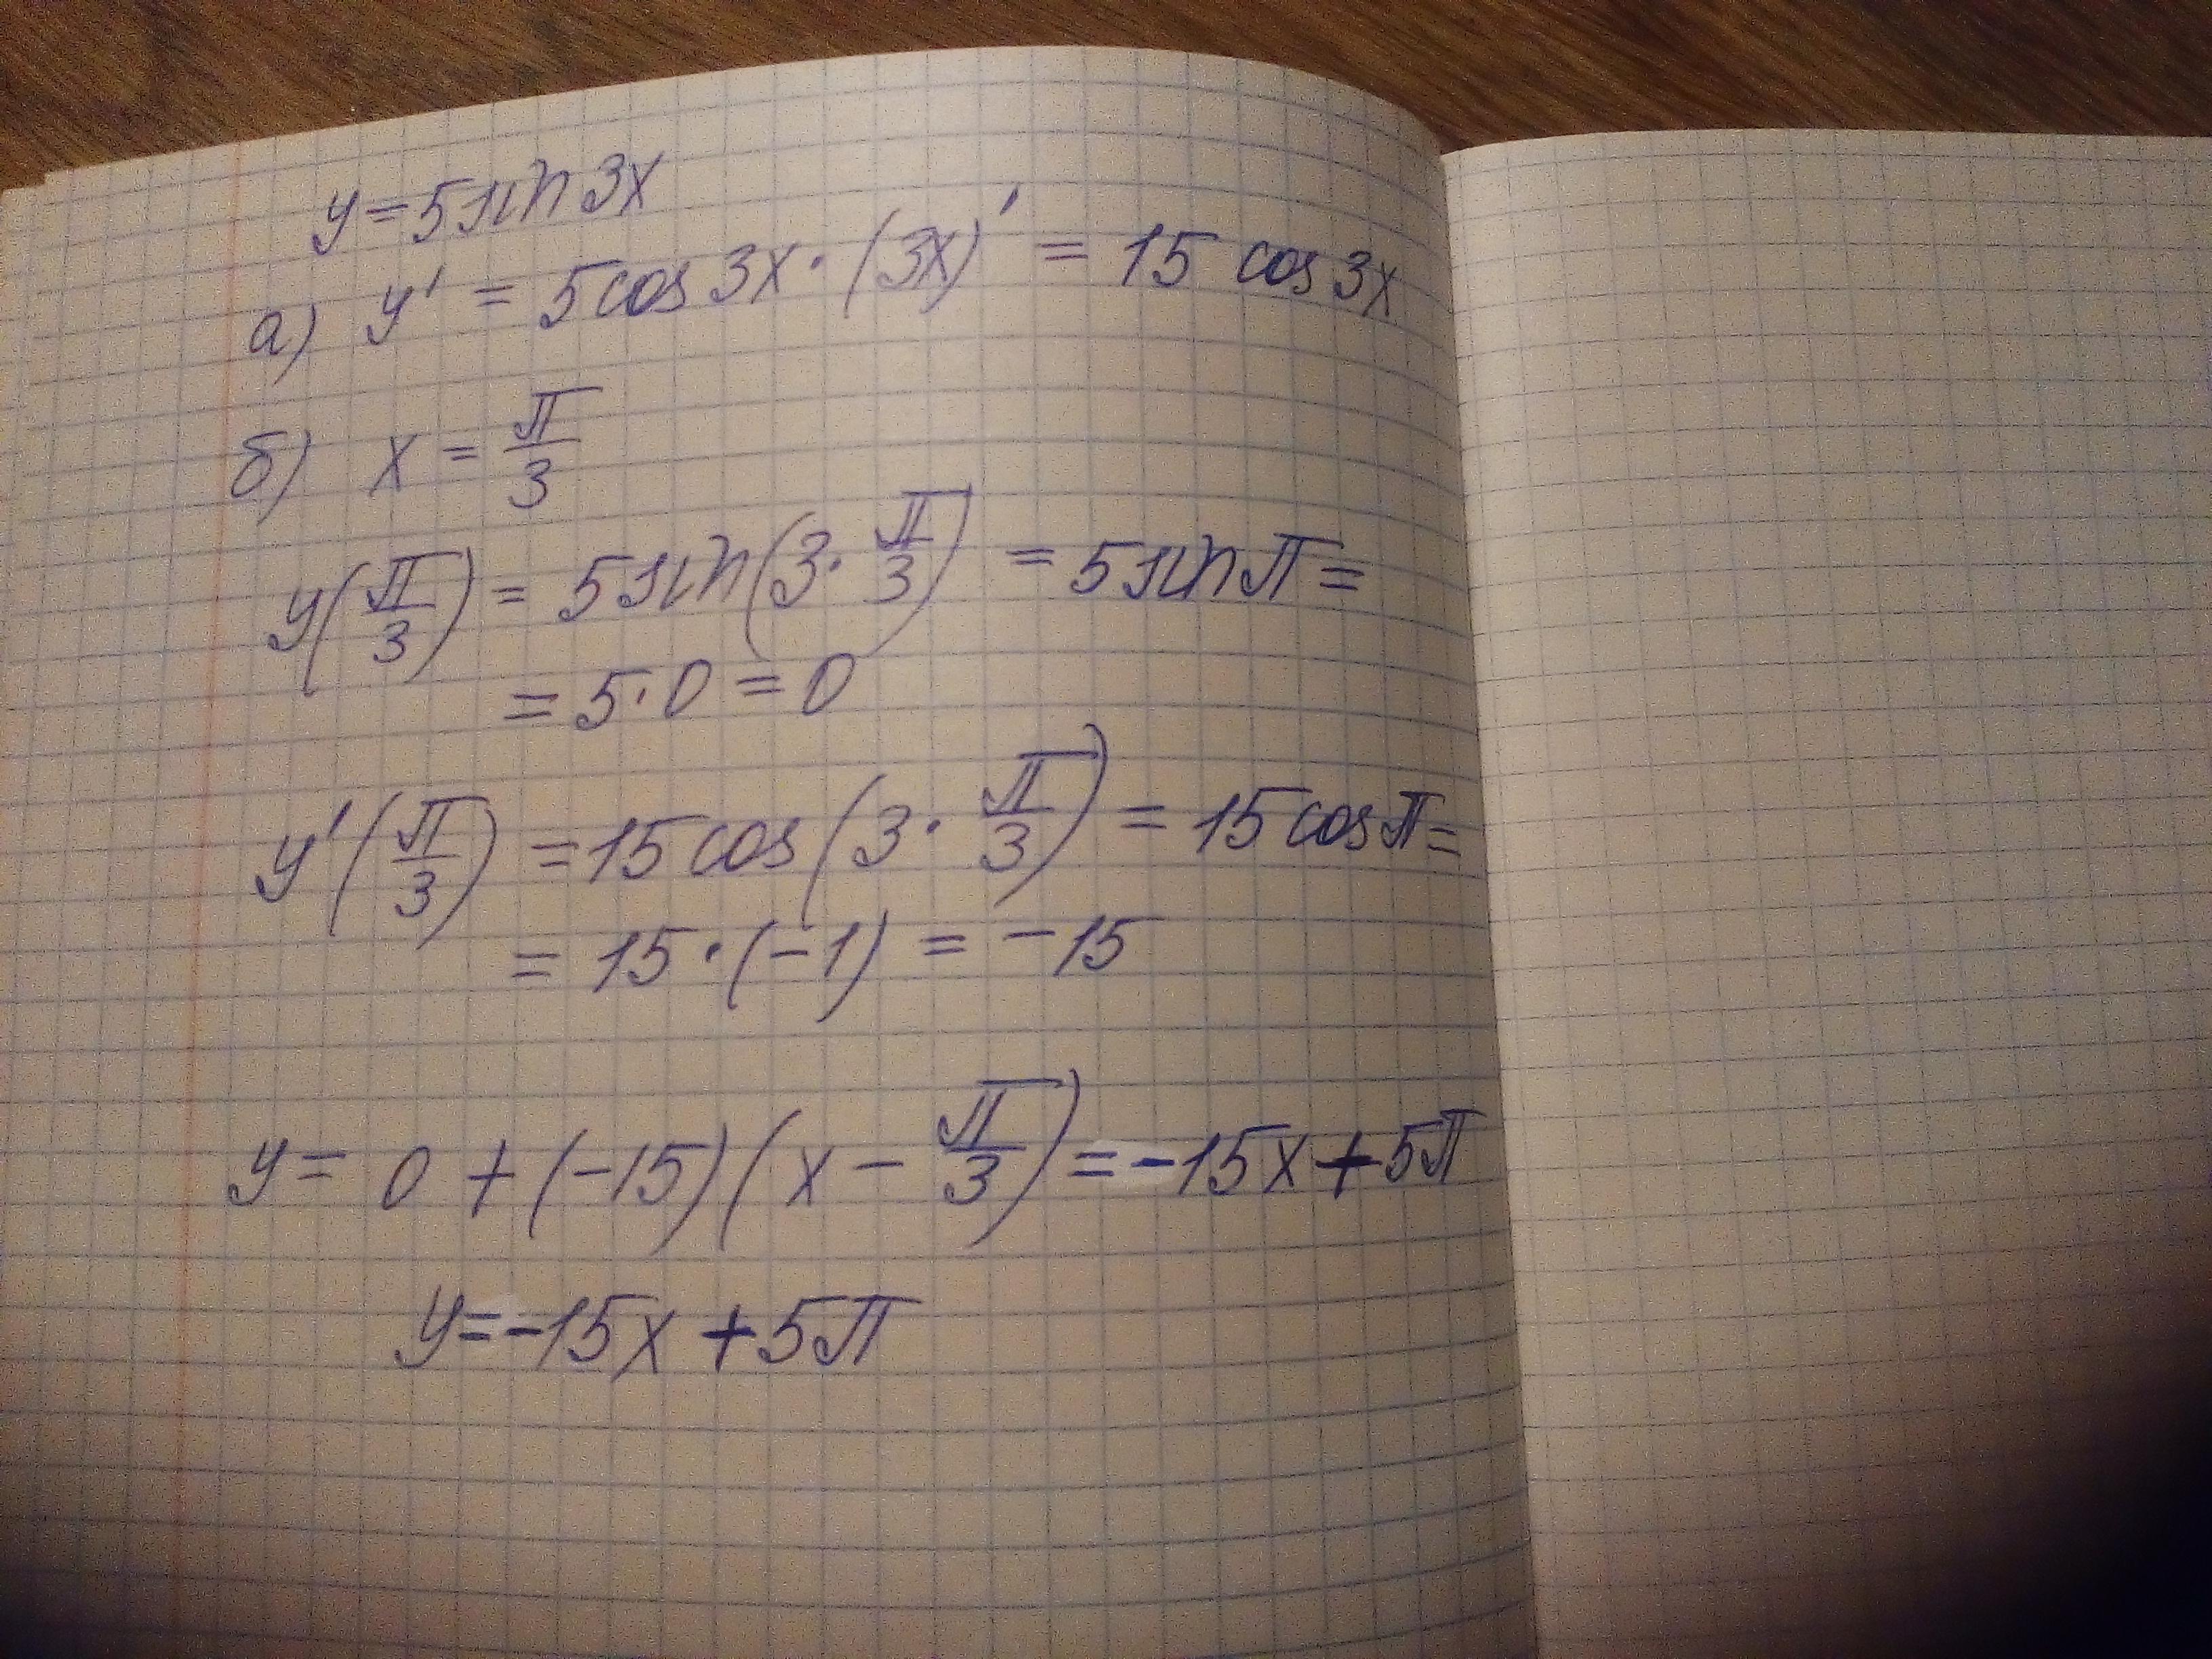 y = 5 sin 3x
а) y' = 5 cos 3x · (3x)' = 15 cos 3x
б) x = π/3
y(π/3) = 5 sin(3 · π/3) = 5 sin π =
= 5 · 0 = 0
y'(π/3) = 15 cos(3 · π/3) = 15 cos π =
= 15 · (-1) = -15
y = 0 + (-15)(x - π/3) = -15x + 5π
y = -15x + 5π